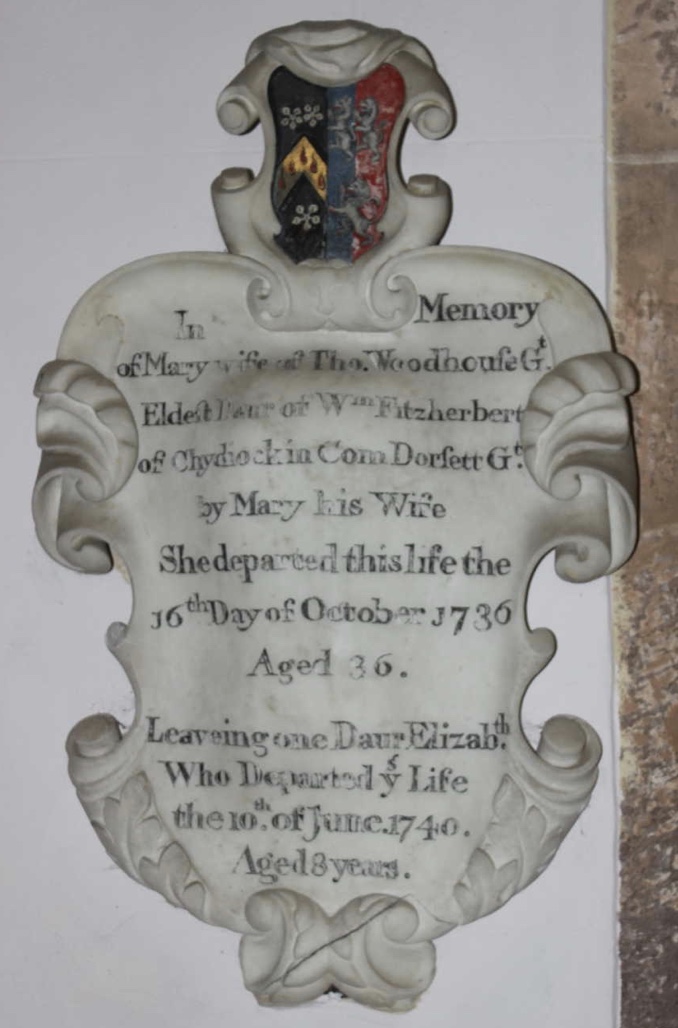 In Memory
of Mary wife of Tho. Woodhouſe G.t
Eldeſt Daur of Wm Fitzherbert
of Chydiock in Com Dorſett G.t
by Mary his Wife
She departed this life the
16th Day of October 1736
Aged 36.
Leaveing one Daur Elizab.th
Who Departed ys Life
the 10.th of June. 1740.
Aged 8 years.